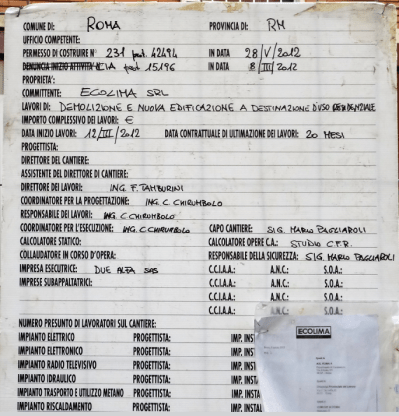 COMUNE DI: ROMA PROVINCIA DI: RM
UFFICIO COMPETENTE:
PERMESSO DI COSTRUIRE N° 231 prot. 42494 IN DATA 28/V/2012
DENUNCIA INIZIO ATTIVITA' N° CIA prot 15196 IN DATA 8/III/2012
PROPRIETA':
COMMITTENTE: ECOLIMA SRL
LAVORI DI: DEMOLIZIONE E NUOVA EDIFICAZIONE A DESTINAZIONE D'USO RESIDENZIALE
IMPORTO COMPLESSIVO DEI LAVORI: €
DATA INIZIO LAVORI: 12/III/2012 DATA CONTRATTUALE DI ULTIMAZIONE DEI LAVORI: 20 MESI
PROGETTISTA:
DIRETTORE DEL CANTIERE:
ASSISTENTE DEL DIRETTORE DI CANTIERE:
DIRETTORE DEI LAVORI: ING. F. TAMBURINI
COORDINATORE PER LA PROGETTAZIONE: ING. C. CHIRUMBOLO
RESPONSABILE DEI LAVORI: ING. C. CHIRUMBOLO
COORDINATORE PER L'ESECUZIONE: ING. C. CHIRUMBOLO CAPO CANTIERE: SIG. MARIO PAGLIAROLI
CALCOLATORE STATICO: CALCOLATORE OPERE C.A.: STUDIO C.F.R.
COLLAUDATORE IN CORSO D'OPERA: RESPONSABILE DELLA SICUREZZA: SIG. MARIO PAGLIAROLI
IMPRESA ESECUTRICE: DUE ALFA SAS C.C.I.A.A.: A.N.C.: S.O.A.:
IMPRESE SUBAPPALTATRICI: C.C.I.A.A.: A.N.C.: S.O.A.:
C.C.I.A.A.: A.N.C.: S.O.A.:
C.C.I.A.A.: A.N.C.: S.O.A.:
NUMERO PRESUNTO DI LAVORATORI SUL CANTIERE:
ECOLIMA
IMPIANTO ELETTRICO PROGETTISTA: IMP. INST
IMPIANTO ELETTRONICO PROGETTISTA: IMP. INST
IMPIANTO RADIO TELEVISIVO PROGETTISTA: IMP. INST
IMPIANTO IDRAULICO PROGETTISTA: IMP. INST
IMPIANTO TRASPORTO E UTILIZZO METANO PROGETTISTA: IMP. INST
IMPIANTO RISCALDAMENTO PROGETTISTA: IMP. INST